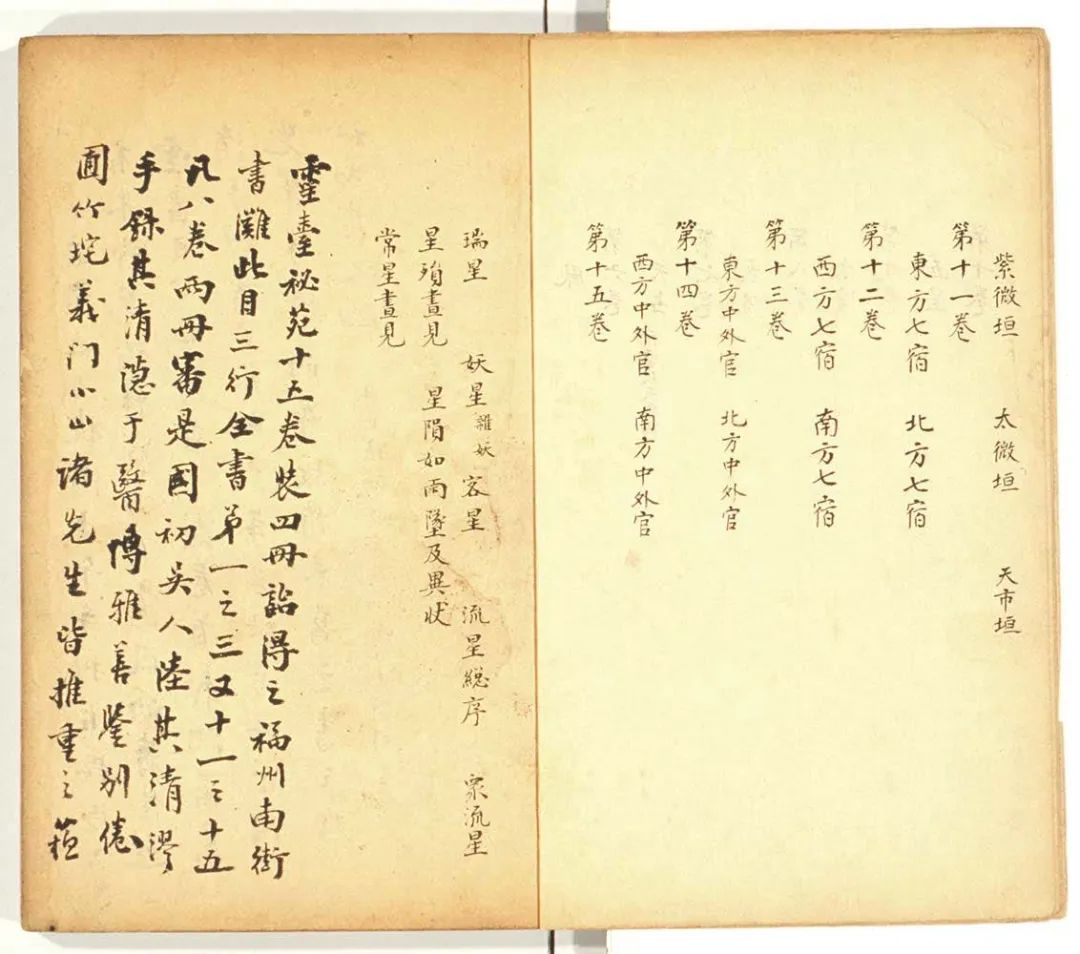 紫微垣 太微垣 天市垣
第十一卷
東方七宿 北方七宿
第十二卷
西方七宿 南方七宿
第十三卷
東方中外官 北方中外官
第十四卷
西方中外官 南方中外官
第十五卷
瑞星 妖星 雜妖 客星 流星總序 眾流星
星殞晝見 星隕如雨墜及異狀
常星晝見
靈臺祕苑十五卷裝四冊詒得之福州南街
書灘此目三行全書第一之三又十一之十五
凡八卷兩冊審是國初吳人陸其清漻
手録其清隱于醫博雅善鑒別倦
圃竹垞義门小山諸先生皆推重之